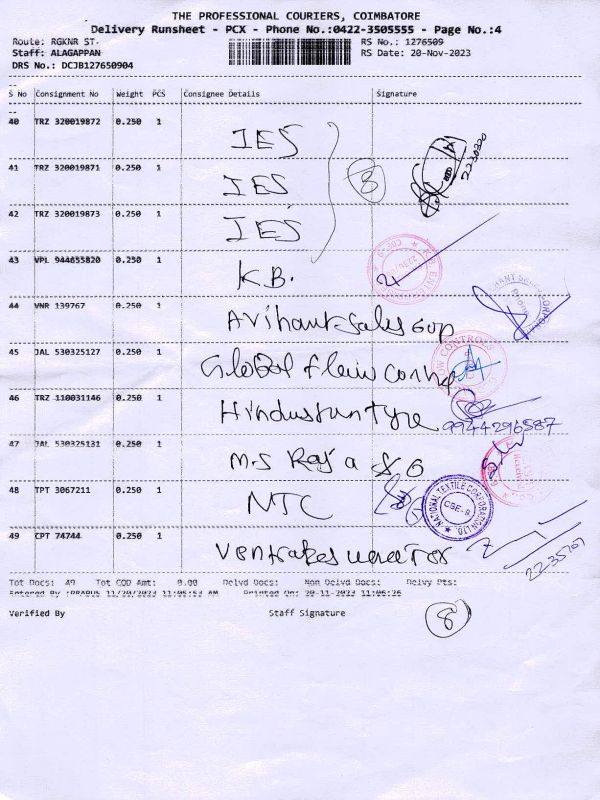 THE PROFESSIONAL COURIERS, COIMBATORE
Delivery Runsheet - PCX - Phone No.:0422-3505555 - Page No.:4
Route: RGKNR ST-
RS No.: 1276509
Staff: ALAGAPPAN
RS Date: 20-Nov-2023
DRS No.: DCJB127650904
S No Consignment No Weight PCS Consignee Details Signature
40 TRZ 320019872 0.250 1 IES
41 TRZ 320019871 0.250 1 IES 3 2230320
42 TRZ 320019873 0.250 1 IES
43 VPL 944635820 0.250 1 K.B.
44 VNR 139767 0.250 1 Arihant Sales Cop
45 JAL 530325127 0.250 1 Global flow
46 TRZ 110031146 0.250 1 Hindustan tyre 9944296587
47 JAL 530325131 0.250 1 M.S Raja & Co
48 TPT 3067211 0.250 1 NTC
NATIONAL TEXTILE CORPORATION LTD. CBE-9
49 CPT 74744 0.250 1
Tot Docs: 49 Tot COD Amt: 0.00 Delvd Docs: Non Delvd Docs: Delvy Pts:
Entered By :PRABU5 11/20/2023 11:05:53 AM Printed On: 20-11-2023 11:06:26
Verified By Staff Signature
8